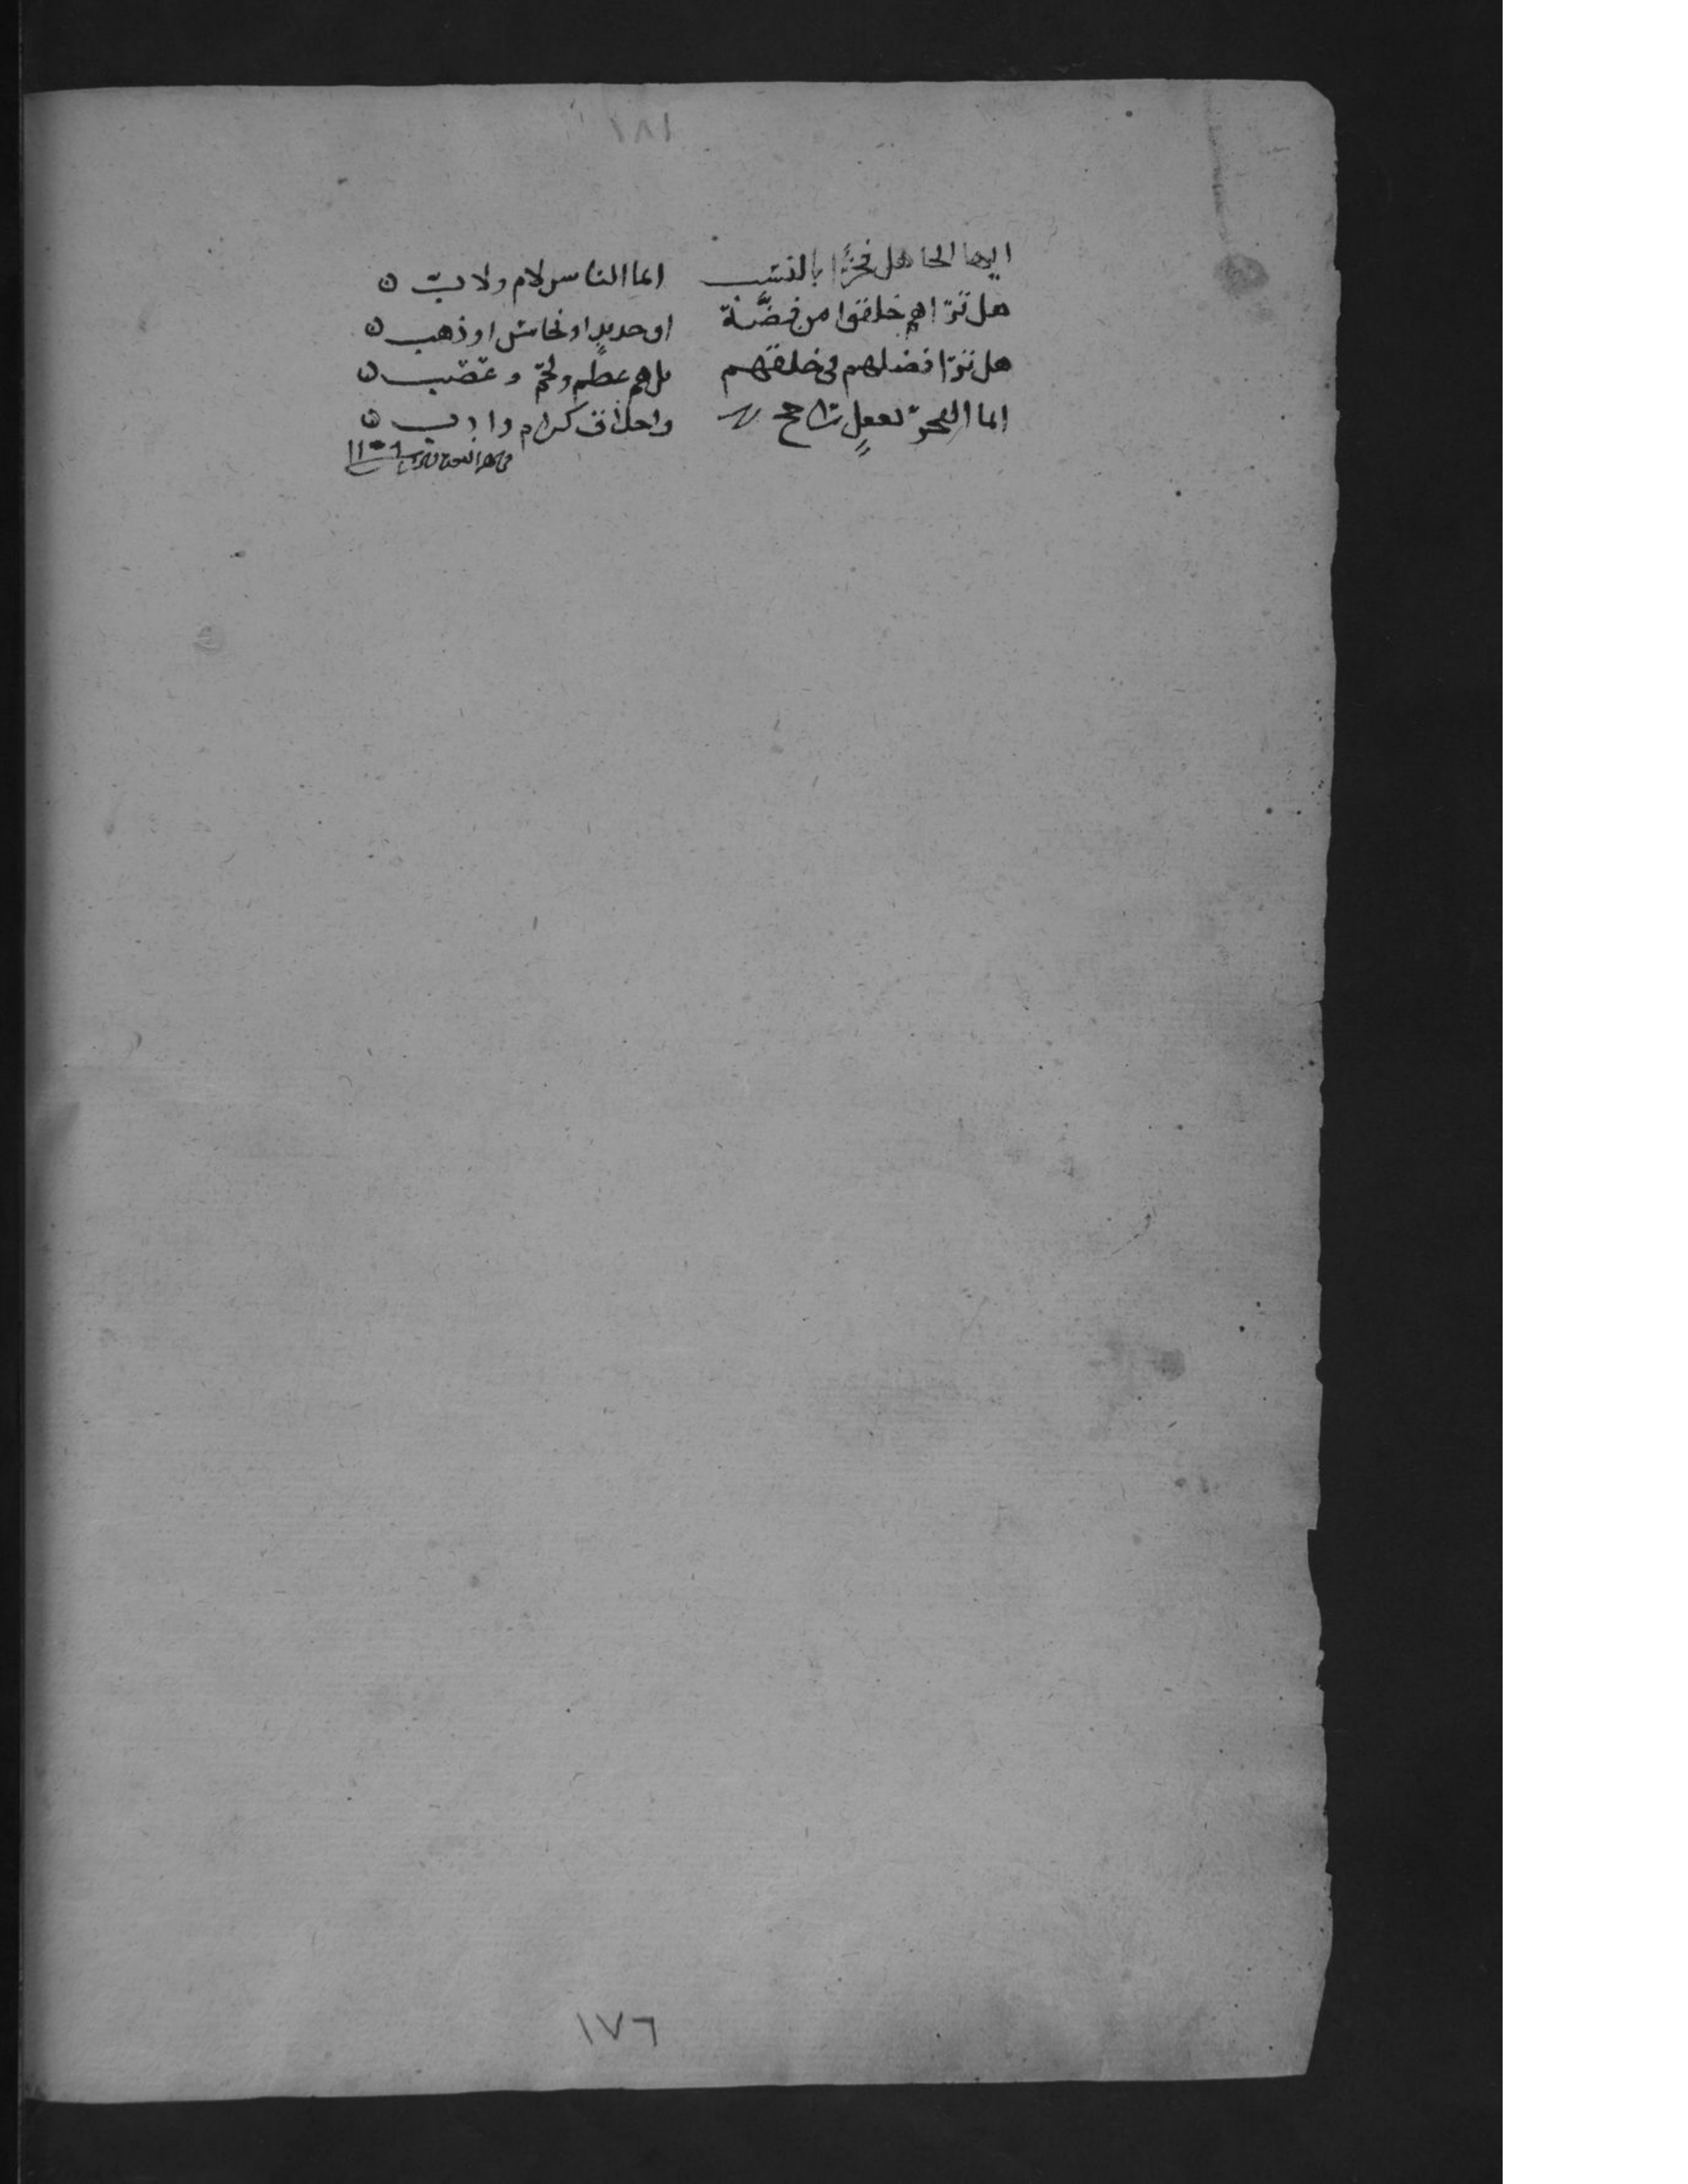 ١٨١
ايها الجاهل فخرًا بالنسب انما الناس لام ولاب
هل ترا هم خلقوا من فضة او حديد او نحاس او ذهب
هل ترا فضلهم في خلقهم بل هم عظم ولحم وعصب
انما الفخر بعقل راجح واخلاق كرام وادب
١٧٦